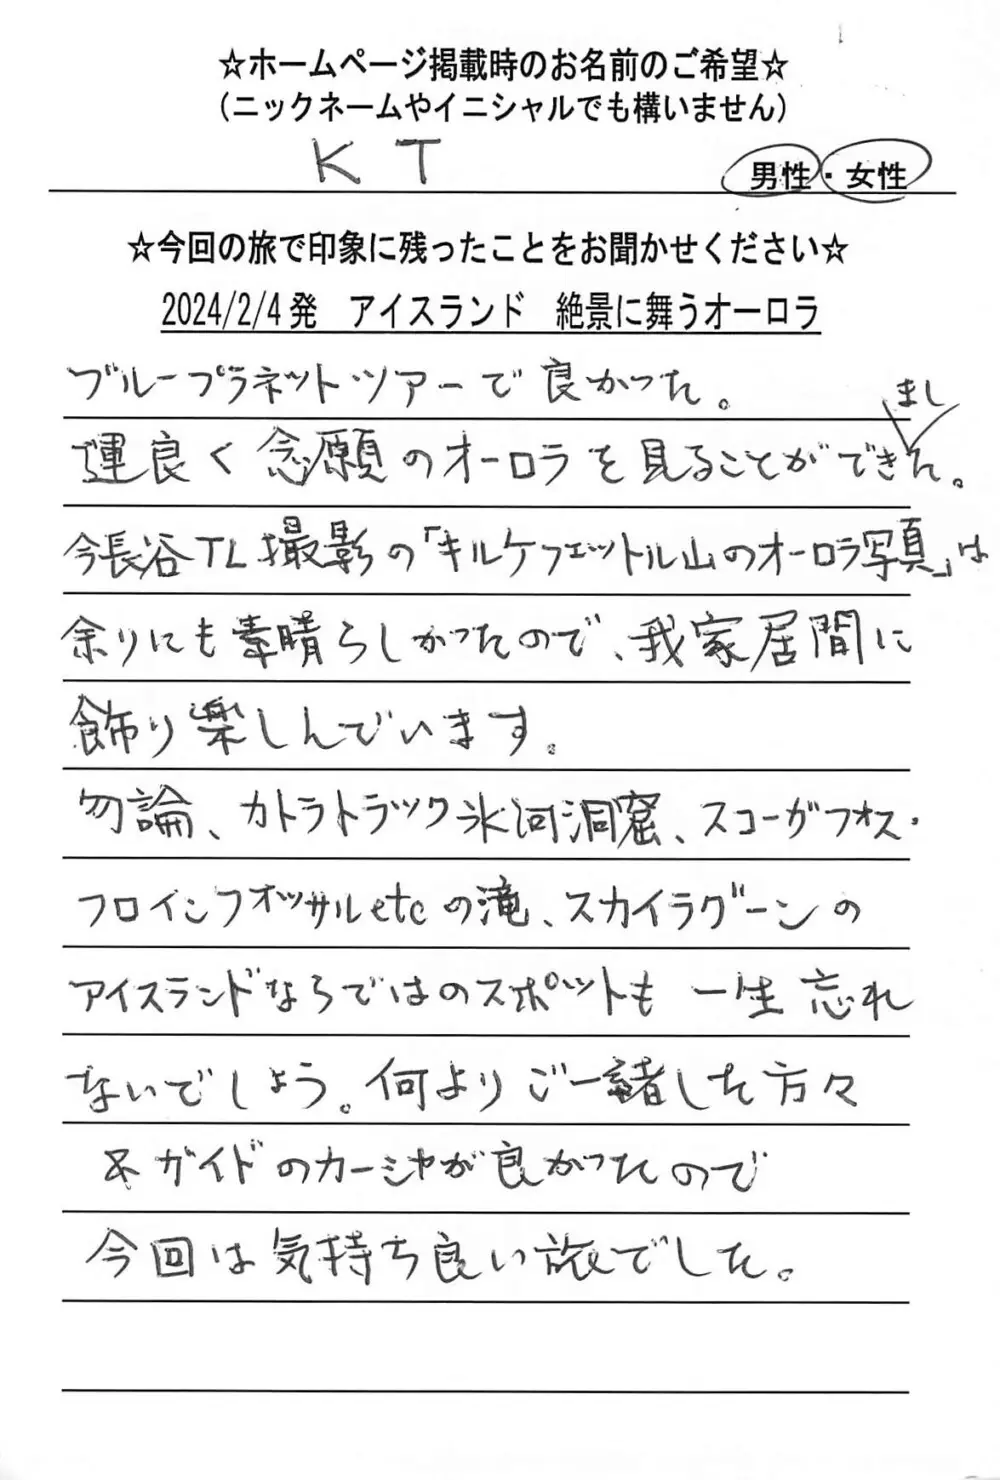 ☆ホームページ掲載時のお名前のご希望☆
(ニックネームやイニシャルでも構いません)
KT
男性・女性
☆今回の旅で印象に残ったことをお聞かせください☆
2024/2/4発　アイスランド　絶景に舞うオーロラ
ブループラネットツアーで良かった。
運良く念願のオーロラを見ることができました。
今長谷TL撮影の「キルケフェットル山のオーロラ写真」は
余りにも素晴らしかったので、我家居間に
飾り楽しんでいます。
勿論、カトラトラック氷河洞窟、スコーガフォス・
フロインフォッサルetcの滝、スカイラグーンの
アイスランドならではのスポットも一生忘れ
ないでしょう。何よりご一諸した方々
&ガイドのカーシャが良かったので
今回は気持ち良い旅でした。